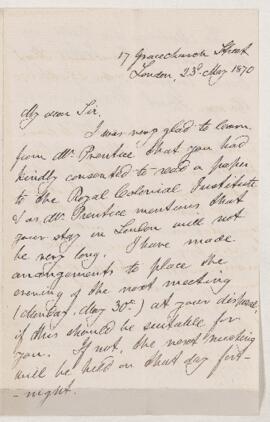 17 Gracechurch Street
London, 23d. May 1870
My dear Sir.
I was very glad to learn
from Mr. Prentice that you had
kindly consented to read a paper
to the Royal Colonial Institute
& as Mr. Prentice mentions that
your stay in London will not
be very long. I have made
arrangements to place the
evening of the next meeting
(Monday, May 30th.) at your disposal,
if this should be suitable for
you. If not, the next meeting
will be held on that day fort-
-night.